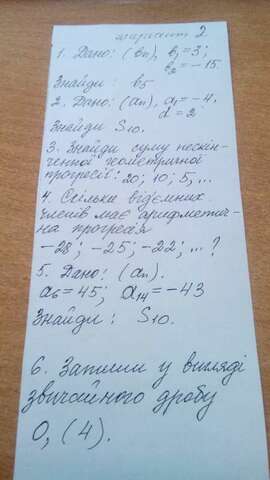 Варіант 2.
1. Дано: (bn), b₁=3;
b₂=-15.
Знайди: b₅
2. Дано: (an), a₁=-4,
d=2
Знайди S₁₀.
3. Знайди суму нескін-
ченної геометричної
прогресії: 20; 10; 5; ...
4. Скільки від'ємних
членів має арифметич-
на прогресія
-28; -25; -22; ... ?
5. Дано: (an).
a₆=45; a₁₄=-43
Знайди: S₁₀.
6. Запиши у вигляді
звичайного дробу
0, (4).